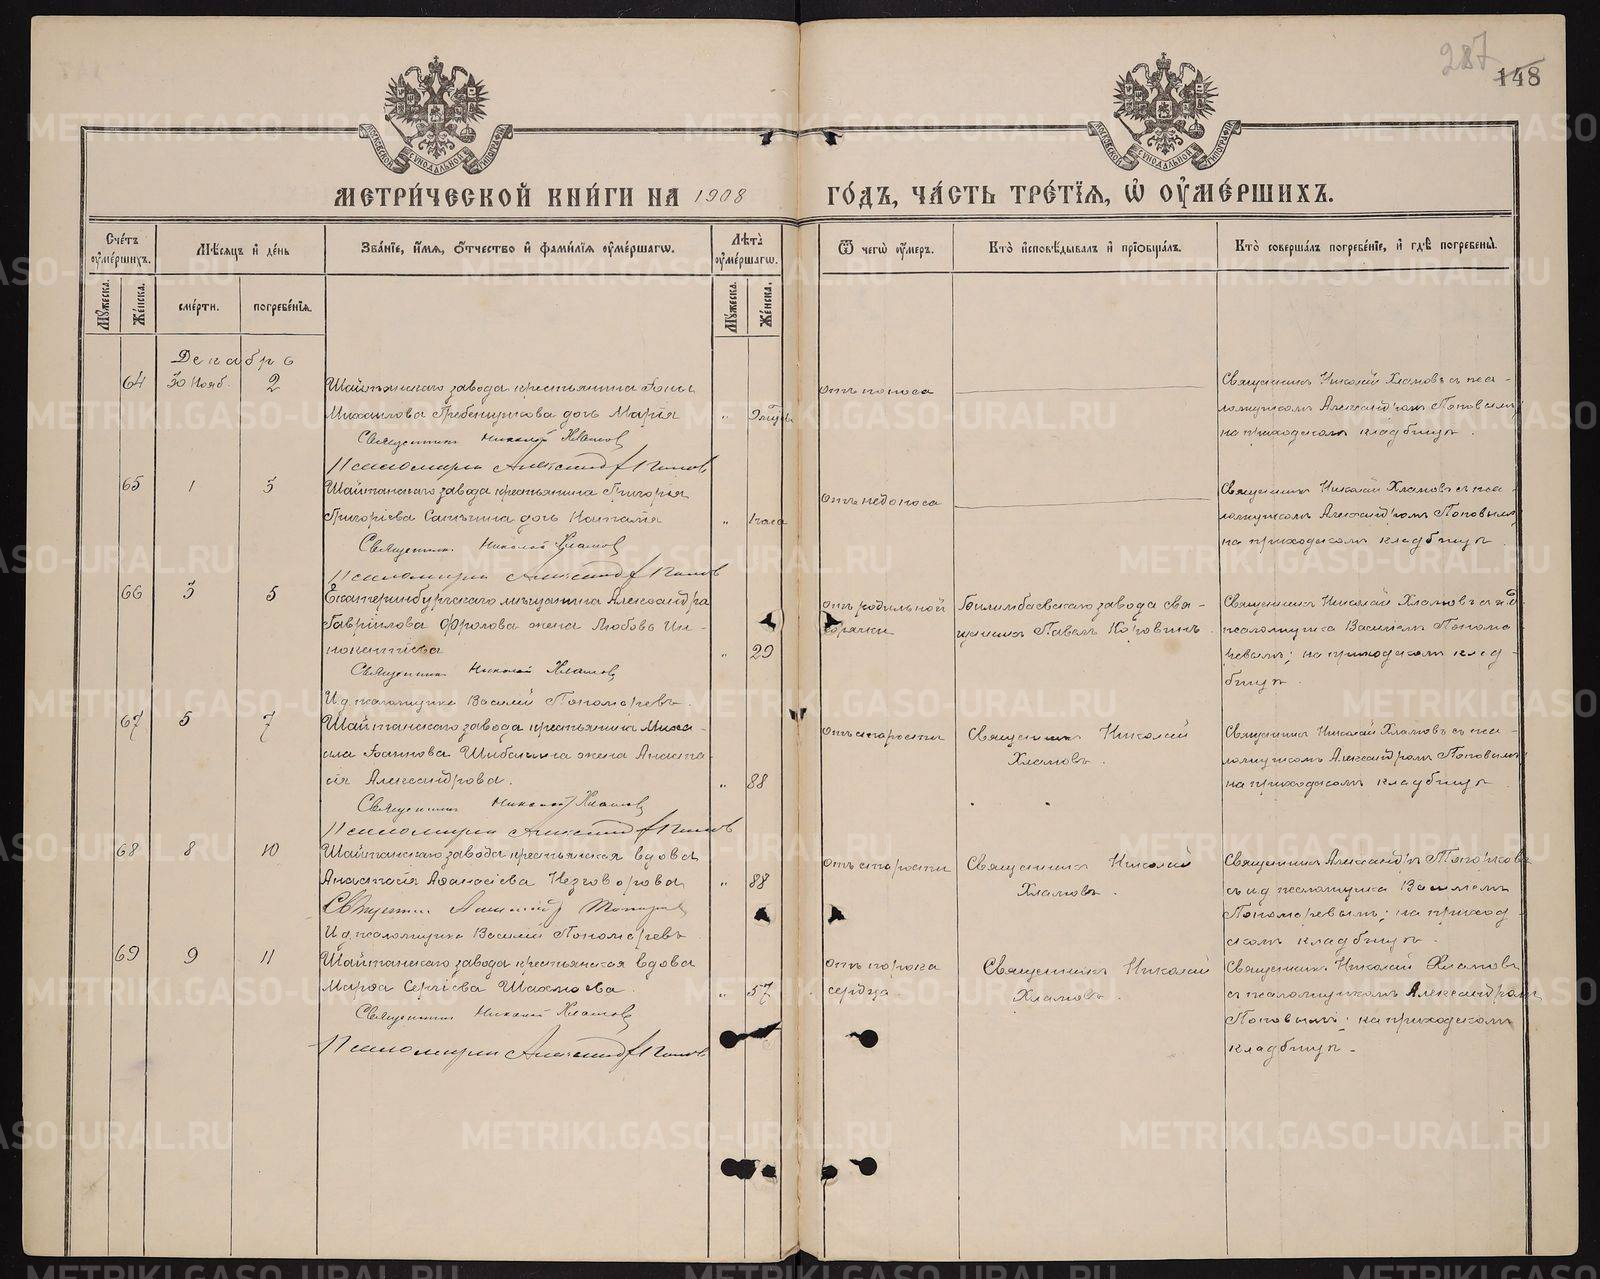 287
148
МОСКОВСКОЙ СѴНОДАЛЬНОЙ ТИПОГРАФІИ
МОСКОВСКОЙ СѴНОДАЛЬНОЙ ТИПОГРАФІИ
МЕТРИ́ЧЕСКОЙ КНИ́ГИ НА 1908 ГО́ДЪ, ЧА́СТЬ ТРЕ́ТЇЯ, Ѡ҆ ОУ҆МЕ́РШИХЪ.
Сче́тъ оу҆ме́ршихъ.
Мѣ́сяцъ и҆ де́нь
Зва́нїе, и҆́мя, ѻ҆́тчество и҆ фами́лїя оу҆ме́ршагѡ.
Лѣ̑та оу҆ме́ршагѡ.
Ѿ чегѡ̀ оу҆́меръ.
Кто̀ и҆сповѣ́дывалъ и҆ прїѡбща́лъ.
Кто̀ соверша́лъ погребе́нїе, и҆ гдѣ̀ погребены̀.
Мꙋ́жеска.
Же́нска.
сме́рти.
погребе́нїя.
Мꙋ́жеска.
Же́нска.
Декабрь
64 30 Нояб. 2
Шайтанскаго завода крестьянина
Михаилова Гребенщикова дочь Марія
Священникъ Николай Хламовъ
Псаломщикъ Александръ Поповъ
отъ поноса
Священникъ Николай Хламовъ съ пса-
ломщикомъ Александромъ Поповымъ
на приходскомъ кладбищѣ.
65 1 3
Шайтанскаго завода крестьянина Григорія
Григоріева дочь Наталія
" 1 часа
Священникъ Николай Хламовъ
Псаломщикъ Александръ Поповъ
отъ недоноса
Священникъ Николай Хламовъ съ пса-
ломщикомъ Александромъ Поповымъ
на приходскомъ кладбищѣ.
66 3 5
Екатеринбургскаго мѣщанина Александра
Гавріилова Фролова жена Любовь Ин-
нокентіева
" 29
Священникъ Николай Хламовъ
И.д. псаломщика Василій Пономаревъ.
отъ родильной
горячки
Билимбаевскаго завода свя-
щенникъ Павелъ Коровинъ.
Священникъ Николай Хламовъ съ и.д.
псаломщика Василіемъ Понома-
ревымъ; на приходскомъ клад-
бищѣ.
67 5 7
Шайтанскаго завода крестьянина Миха-
ила Іоаннова Шибакина жена Анаста-
сія Александрова.
" 88
Священникъ Николай Хламовъ
Псаломщикъ Александръ Поповъ
отъ старости
Священникъ Николай
Хламовъ.
Священникъ Николай Хламовъ съ пса-
ломщикомъ Александромъ Поповымъ
на приходскомъ кладбищѣ.
68 8 10
Шайтанскаго завода крестьянская вдова
Анастасія Аѳанасіева Незговорова
" 88
Священникъ Александръ Топорковъ
И.д. псаломщика Василій Пономаревъ
отъ старости
Священникъ Николай
Хламовъ.
Священникъ Александръ Топорковъ
съ и.д. псаломщика Василіемъ
Пономаревымъ; на приход-
скомъ кладбищѣ.
69 9 11
Шайтанскаго завода крестьянская вдова
Марѳа Сергіева
" 57
Священникъ Николай Хламовъ
Псаломщикъ Александръ Поповъ
отъ порока
сердца
Священникъ Николай
Хламовъ.
Священникъ Николай Хламовъ
съ псаломщикомъ Александромъ
Поповымъ; на приходскомъ
кладбищѣ.
METRIKI.GASO-URAL.RU